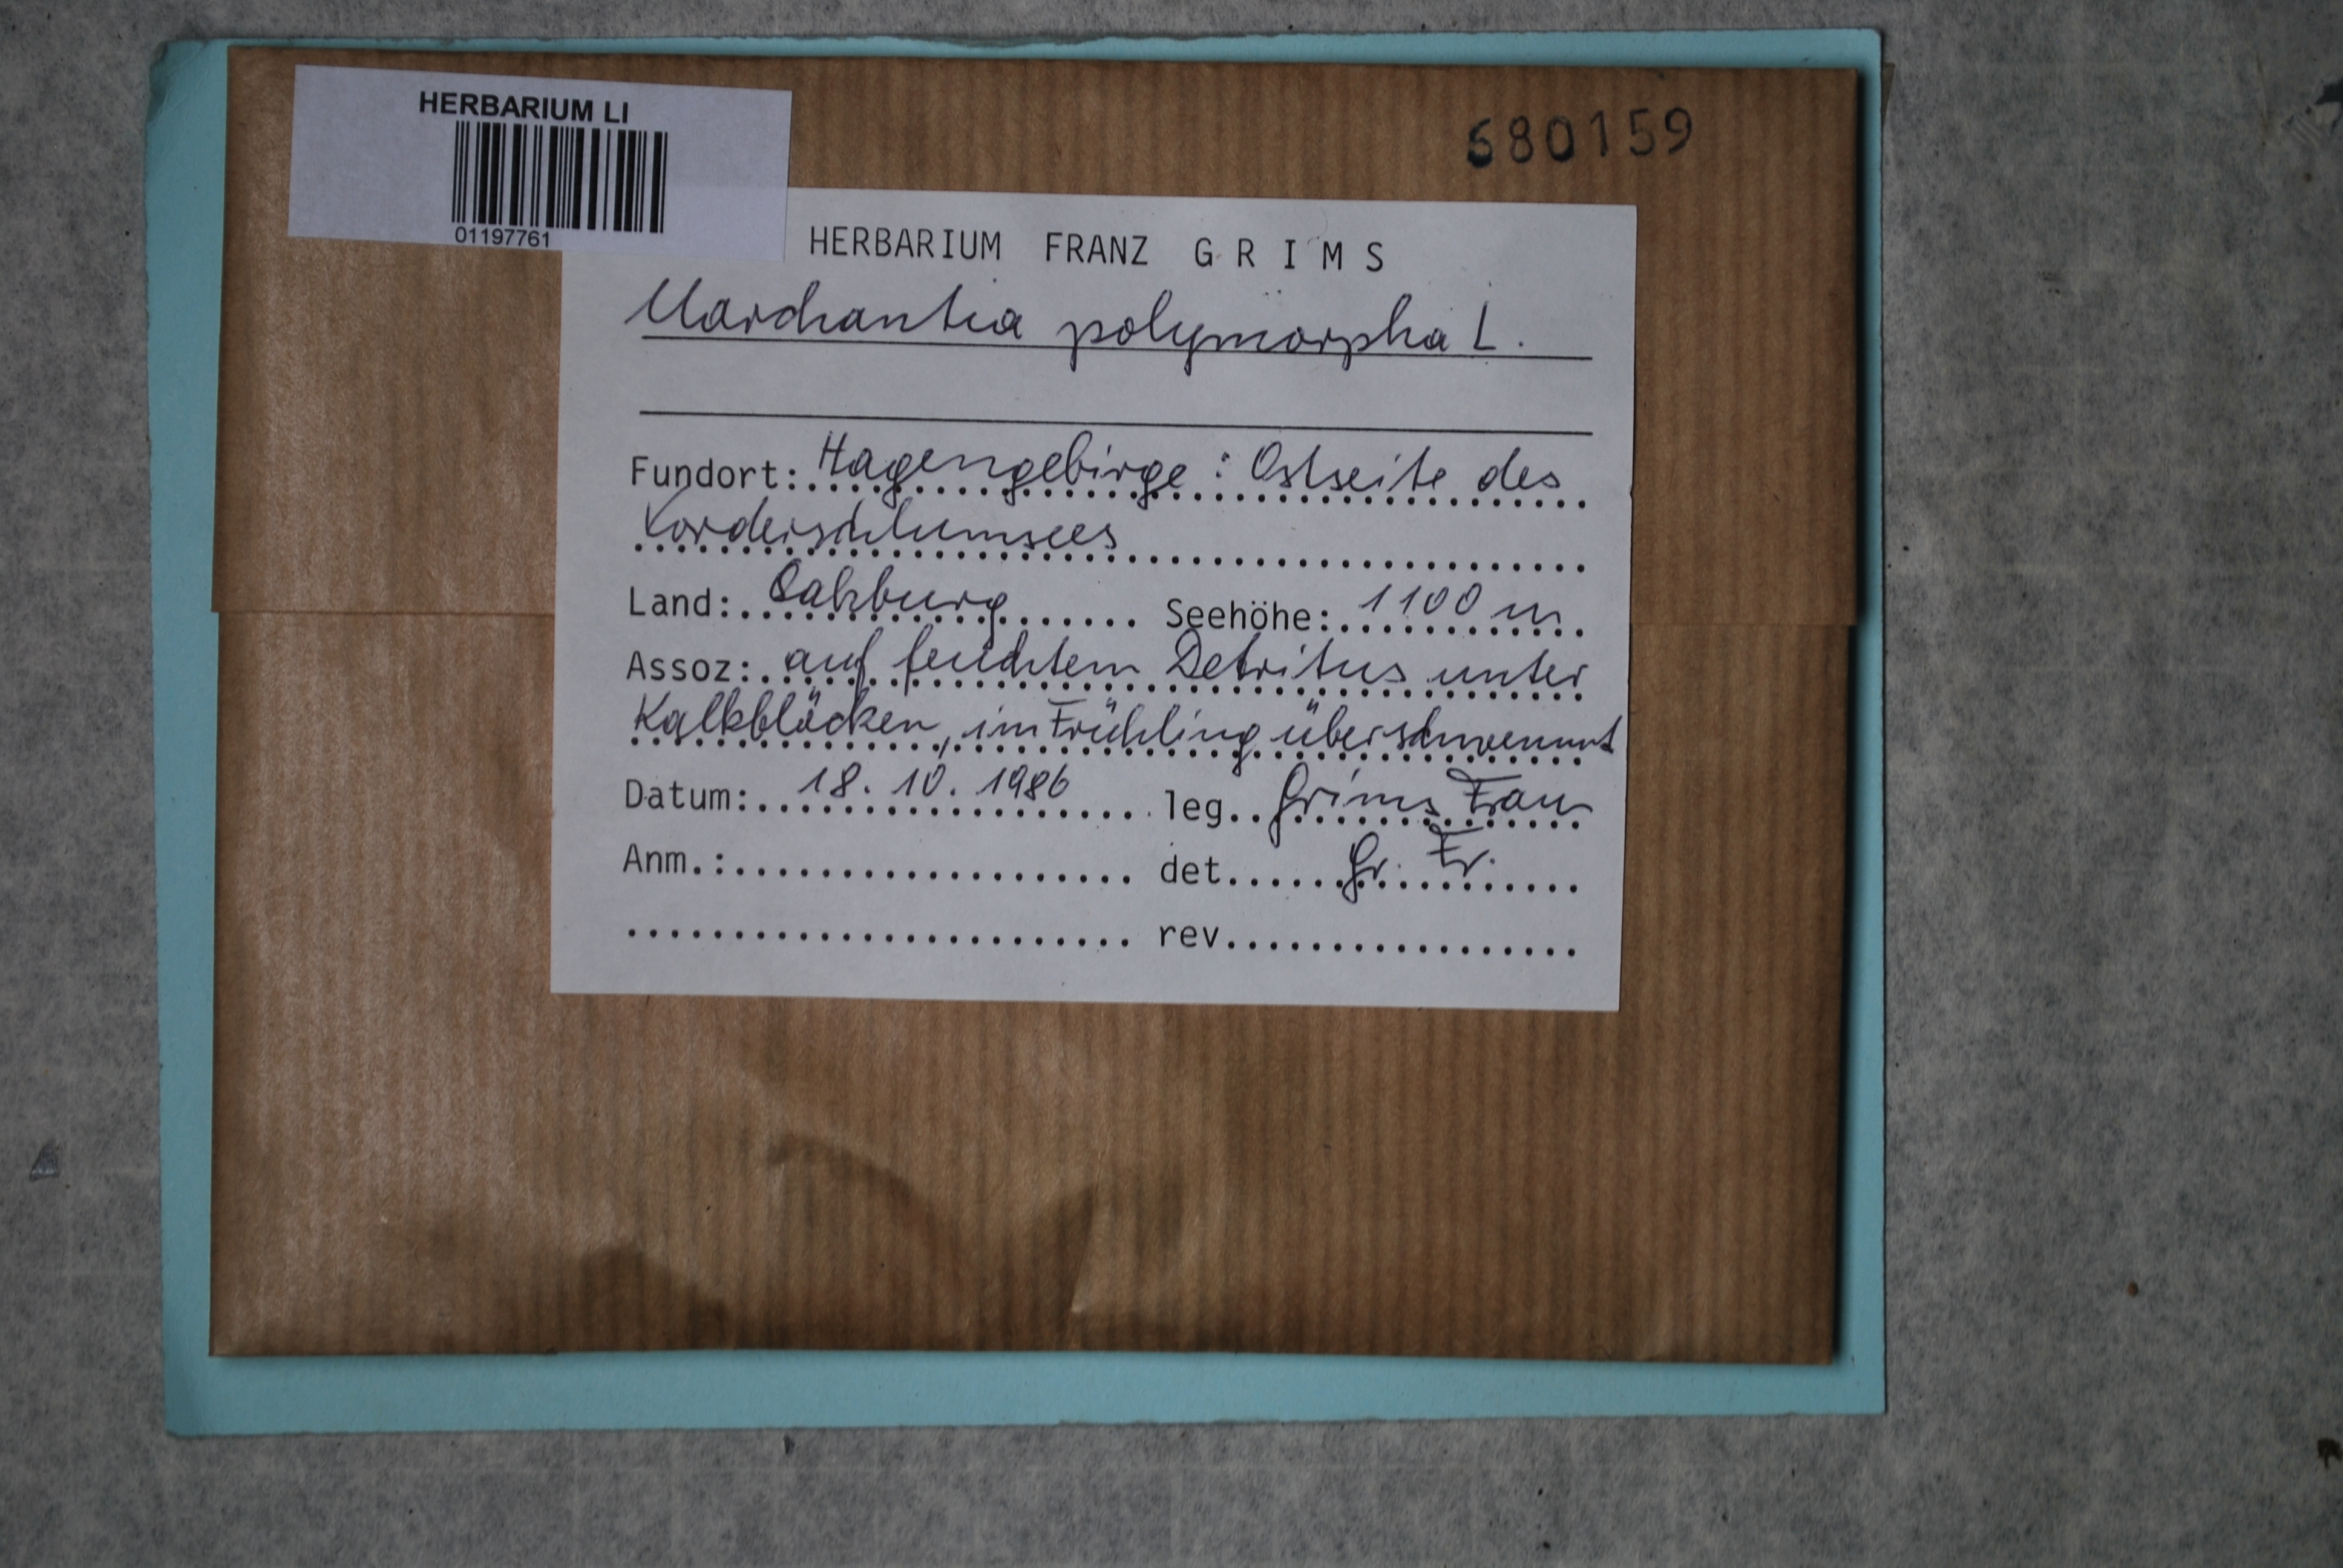 HERBARIUM LI
01197761
680159
HERBARIUM FRANZ G R I M S
Marchantia polymorpha L.
Fundort: Hagengebirge: Ostseite des
Vorderschlumsees
Land: Salzburg Seehöhe: 1100 m
Assoz: auf feuchtem Detritus unter
Kalkblöcken, im Frühling überschwemmt
Datum: 18. 10. 1986 leg. Grims Franz
Anm.: det. Gr. Fr.
rev.